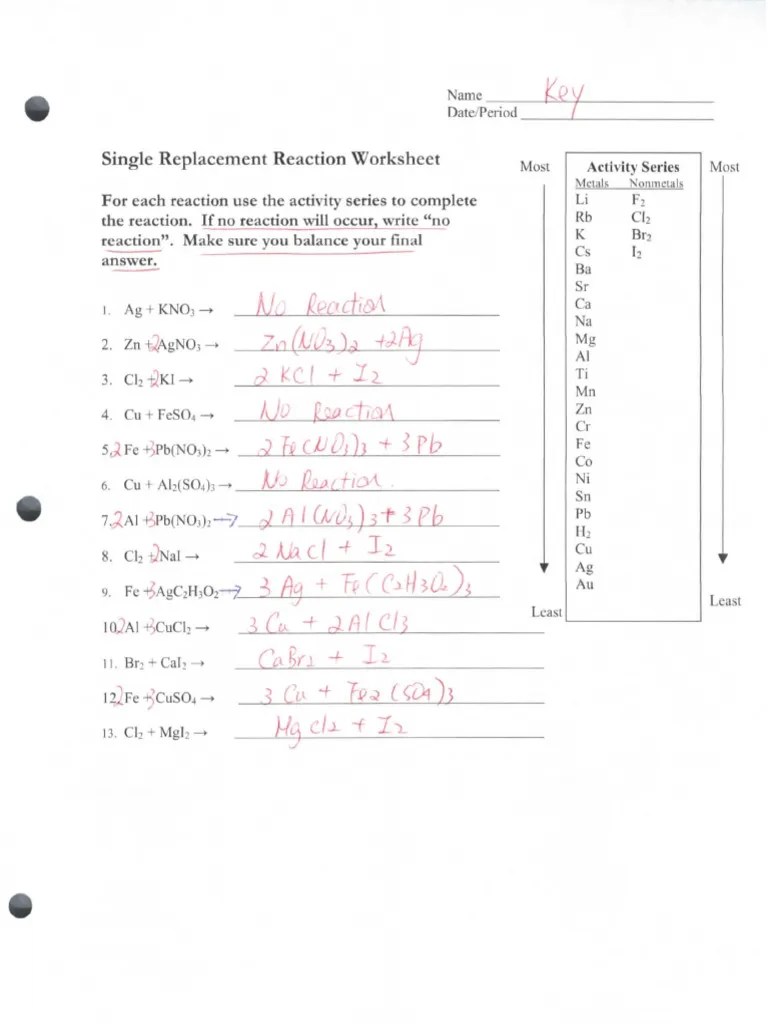 Name Key
Date/Period
Single Replacement Reaction Worksheet
For each reaction use the activity series to complete
the reaction. If no reaction will occur, write “no
reaction”. Make sure you balance your final
answer.
1. Ag + KNO₃ → No Reaction
2. Zn + 2AgNO₃ → Zn(NO₃)₂ + 2Ag
3. Cl₂ + 2KI → 2 KCl + I₂
4. Cu + FeSO₄ → No Reaction
5. 2 Fe + 3Pb(NO₃)₂ → 2 Fe(NO₃)₃ + 3 Pb
6. Cu + Al₂(SO₄)₃ → No Reaction.
7. 2Al + 3Pb(NO₃)₂ → 2 Al(NO₃)₃ + 3 Pb
8. Cl₂ + 2NaI → 2 NaCl + I₂
9. Fe + 3AgC₂H₃O₂ → 3 Ag + Fe(C₂H₃O₂)₃
10. 2Al + 3CuCl₂ → 3 Cu + 2AlCl₃
11. Br₂ + CaI₂ → CaBr₂ + I₂
12. 2Fe + 3CuSO₄ → 3 Cu + Fe₂(SO₄)₃
13. Cl₂ + MgI₂ → MgCl₂ + I₂
Most
Activity Series
Most
Metals Nonmetals
Li F₂
Rb Cl₂
K Br₂
Cs I₂
Ba
Sr
Ca
Na
Mg
Al
Ti
Mn
Zn
Cr
Fe
Co
Ni
Sn
Pb
H₂
Cu
Ag
Au
Least
Least